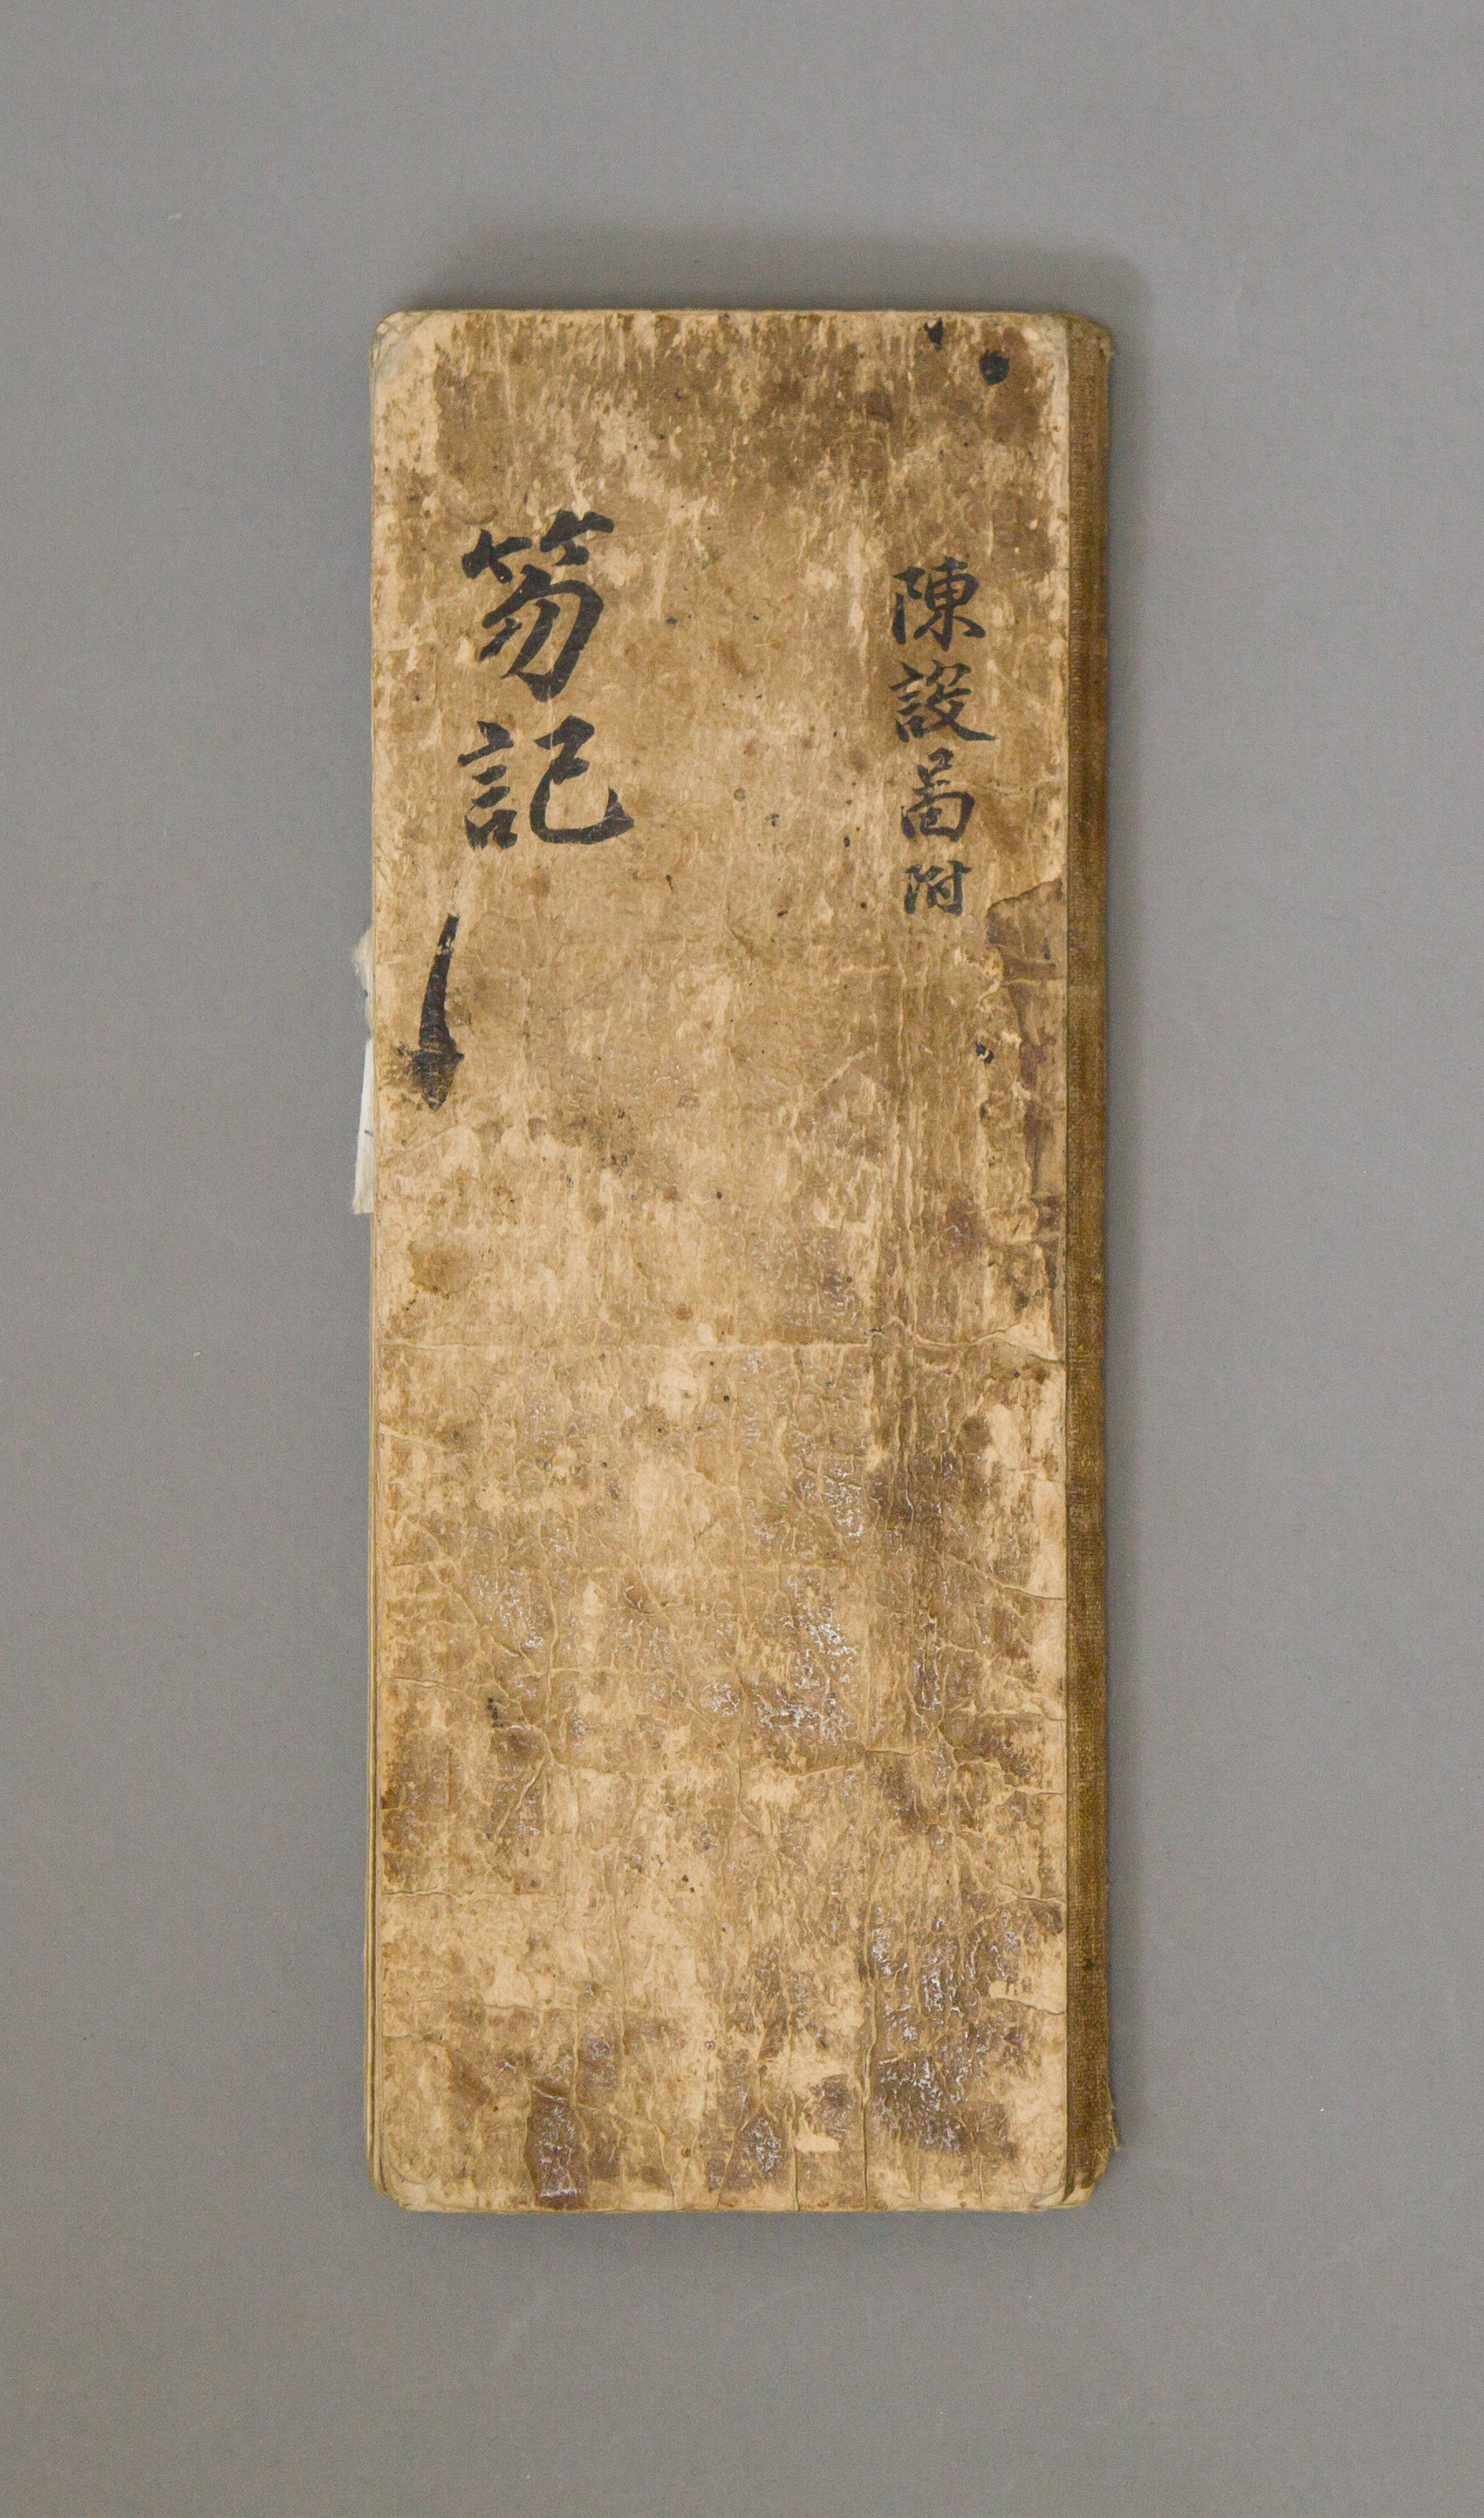 陳設啚附
笏記